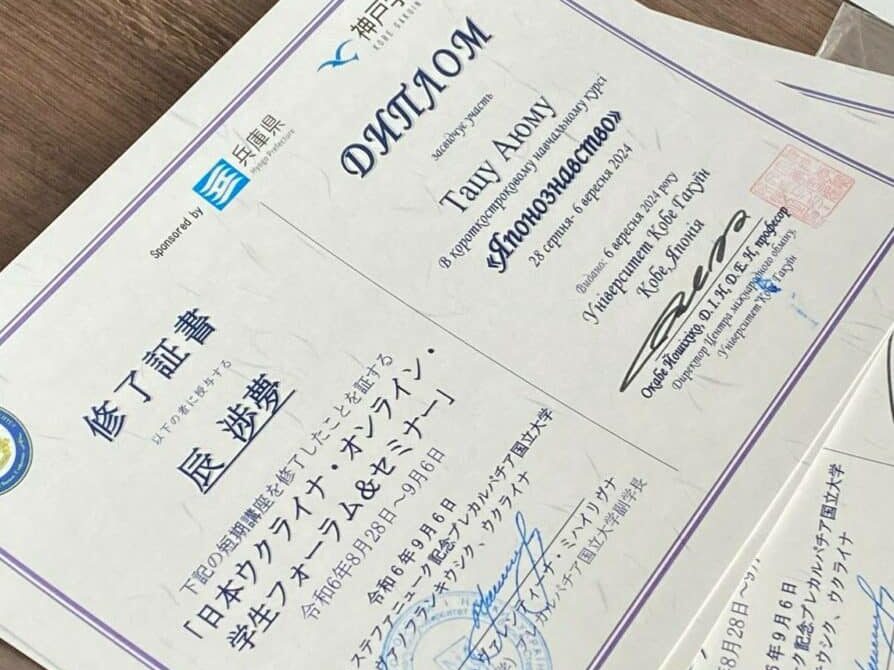 Sponsored by
兵庫県
Hyogo Prefecture
神戸学
KOBE GAKUIN
修了証書
以下の者に授与する
辰 渉夢
下記の短期講座を修了したことを証する
「日本ウクライナ・オンライン・
学生フォーラム&セミナー」
令和6年8月28日～9月6日
令和6年9月6日
ステファニューク記念プレカルパチア国立大学
ヴァノフランキウシク、ウクライナ
ヴァレンティナ・ミハイリヴナ
プレカルパチア国立大学副学長
ДИПЛОМ
засвідчує участь
Тацу Аюму
В короткостроковому навчальному курсі
«Японознавство»
28 серпня- 6 вересня 2024
Видано: 6 вересня 2024 року
Університет Кобе Гакуїн
Кобе, Японія
Окабе Йошихіко, D. I. H, D. E. H, професор
Директор Центра міжнародного обміну,
Університет Кобе Гакуїн
8日～9月
年9月6日
記念プレカルパチア国立大学
シク、ウクライナ